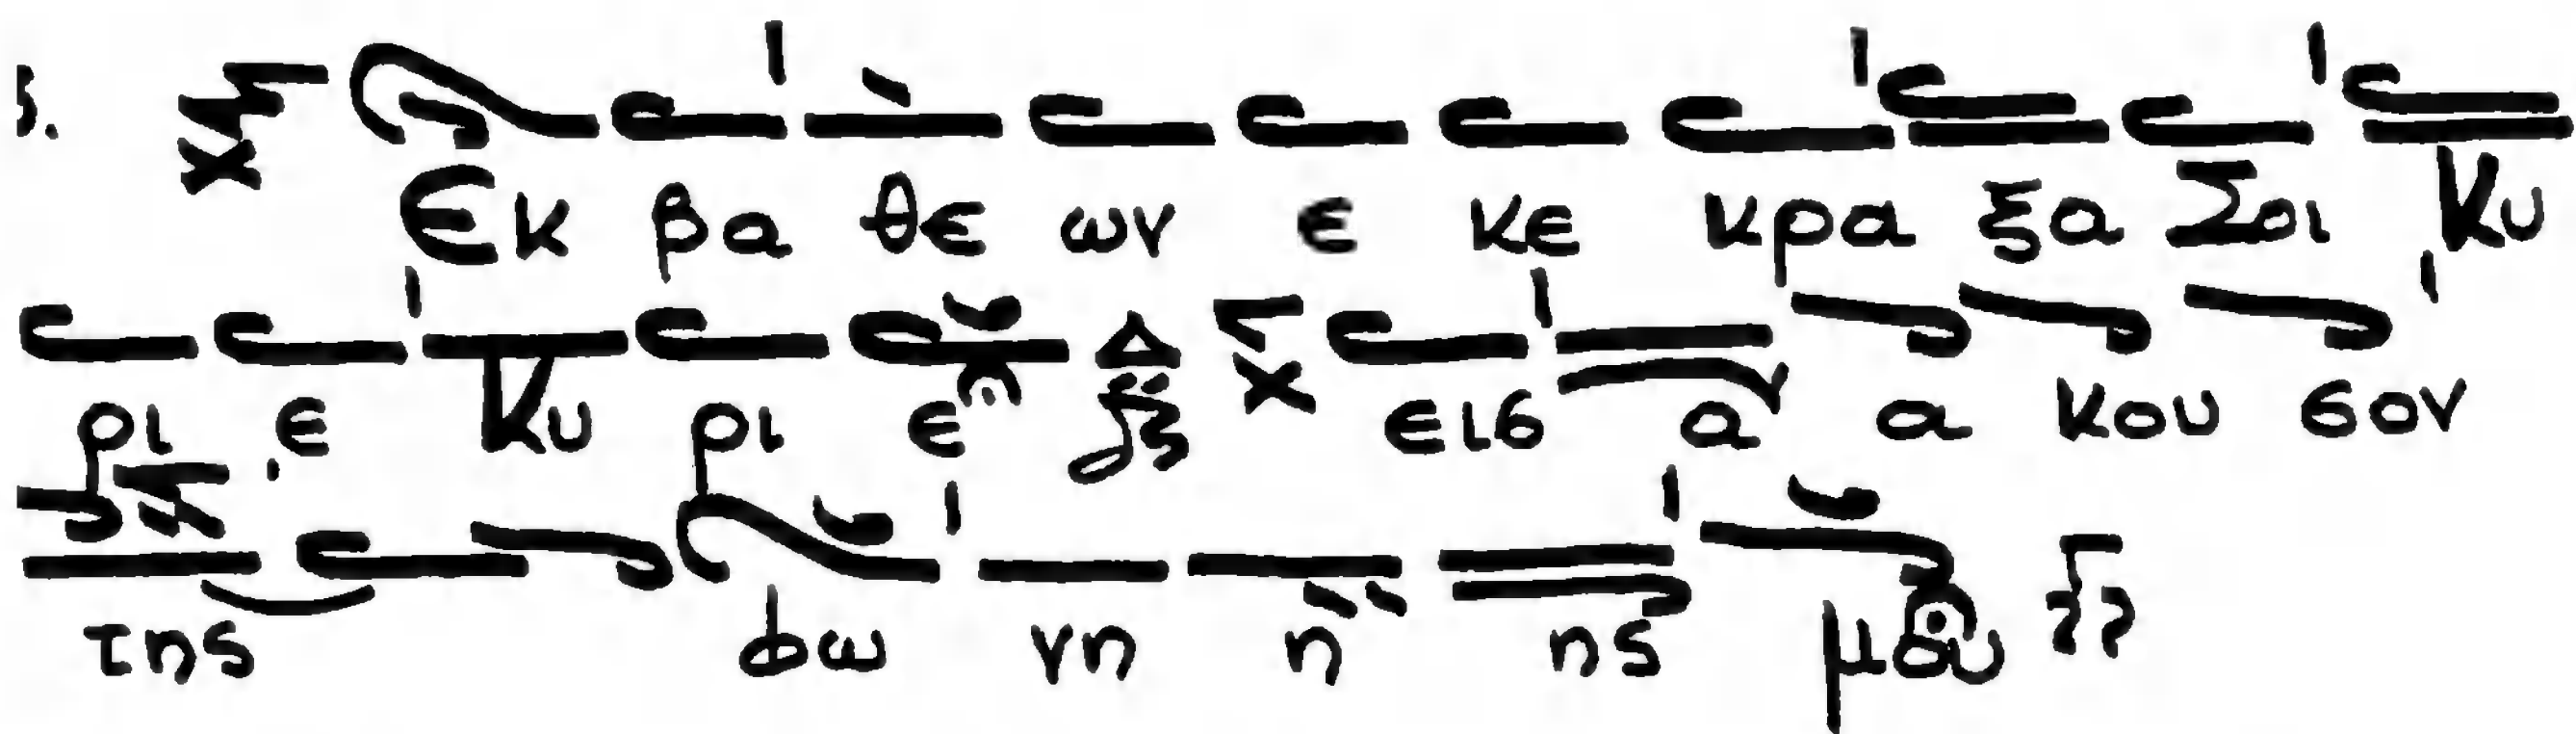 Εκ βα θε ων ε κε κρα ξα Σοι Κυ
ρι ε Κυ ρι ε εισ α α κου σον
της φω νη η ης μου